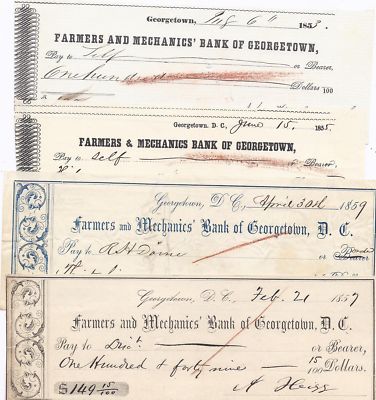 Georgetown, Aug 6th 1853.
FARMERS AND MECHANICS' BANK OF GEORGETOWN,
Pay to Self or Bearer.
One hundred Dollars 100
Georgetown, D. C., June 15, 1855.
FARMERS & MECHANICS BANK OF GEORGETOWN,
Pay to self or Bearer,
Georgetown, D. C., April 30th 1859
Farmers and Mechanics' Bank of Georgetown, D. C.
Pay to or Bearer
Georgetown, D. C. Feb. 21 1857
Farmers and Mechanics' Bank of Georgetown, D. C.
Pay to or Bearer,
One Hundred & forty nine 15/100 Dollars.
$149 15/100